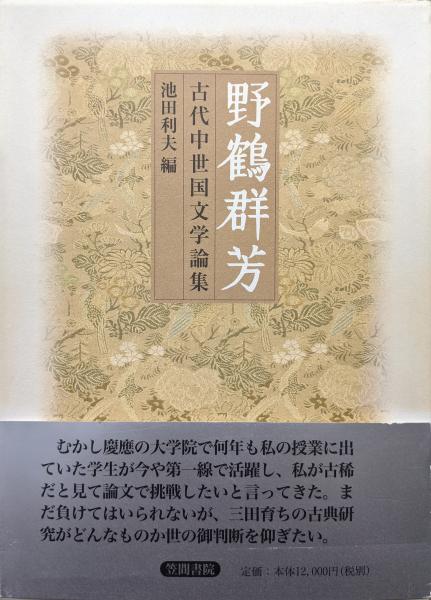 野鶴群芳
古代中世国文学論集
池田利夫 編
むかし慶應の大学院で何年も私の授業に出
ていた学生が今や第一線で活躍し、私が古稀
だと見て論文で挑戦したいと言ってきた。ま
だ負けてはいられないが、三田育ちの古典研
究がどんなものか世の御判断を仰ぎたい。
笠間書院
定価:本体12,000円(税別)